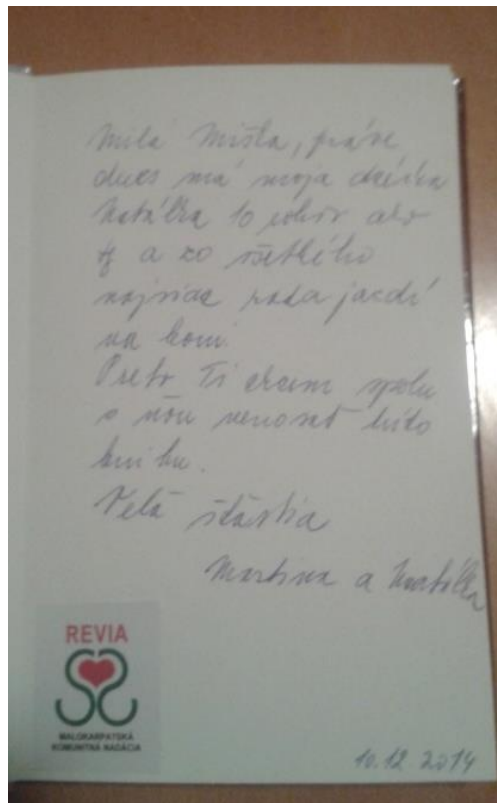 Milá Miška, práve
dnes má moja dcérka
Natálka 10 rokov ako
ty a zo všetkého
najviac rada jazdí
na koni.
Preto Ti chcem spolu
s ňou venovať túto
knihu.
Veľa šťastia
Martina a Natálka
REVIA
MALOKARPATSKÁ
KOMUNITNÁ NADÁCIA
10.12.2014